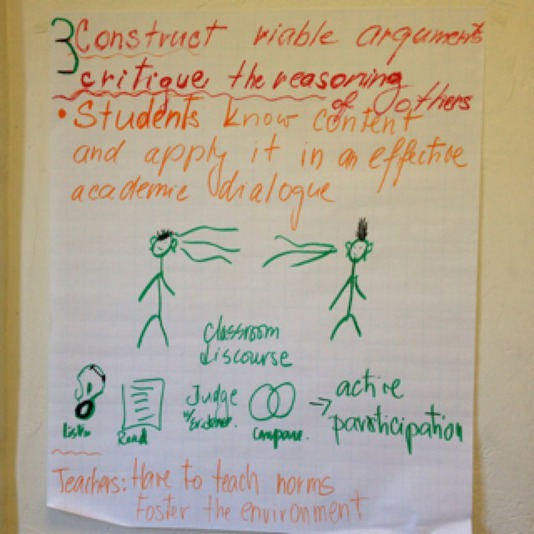 3 Construct viable arguments
critique the reasoning
of others
• Students know content
and apply it in an effective
academic dialogue
Classroom
discourse
Listen
Read
Judge
w/Evidence.
Compare.
→ active
participation
Teachers: Have to teach norms
Foster the environment